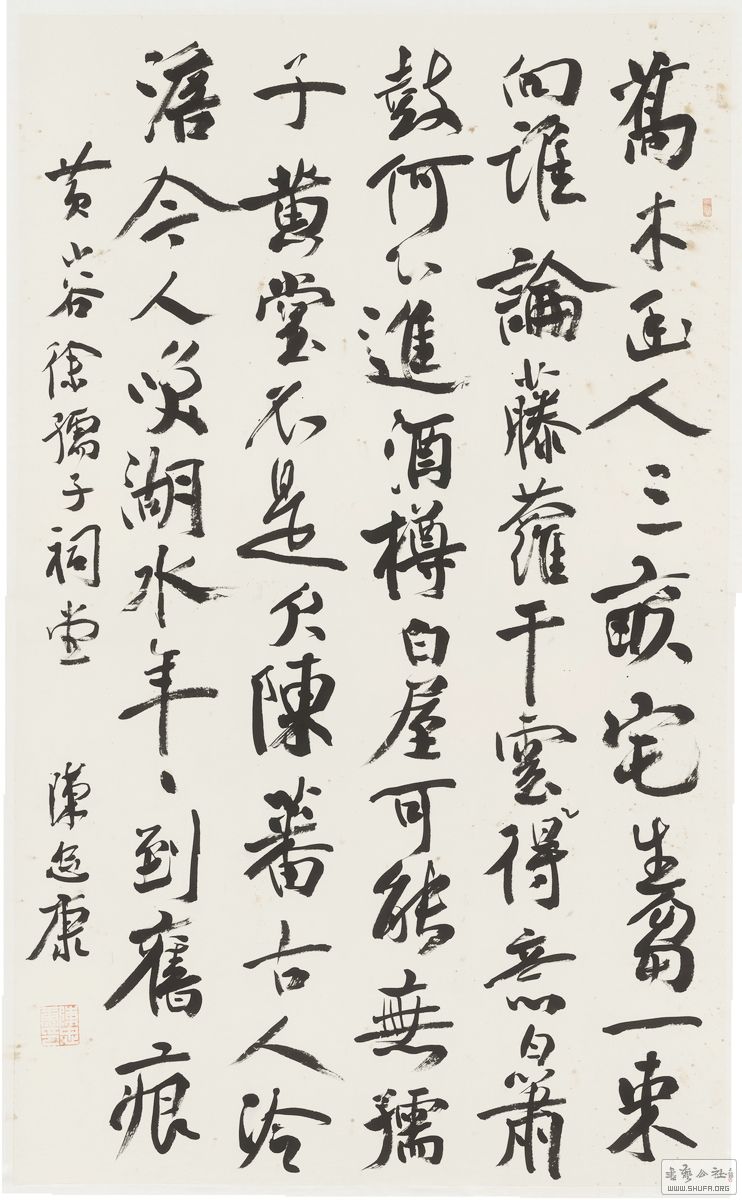 喬木幽人三畝宅生芻一束
向誰論藤蘿干雲得意日簫
鼓何人進酒樽白屋可能無孺
子黄堂不是欠陳蕃古人冷
澹今人咲湖水年〻到舊痕
黄山谷徐孺子祠堂 陳忠康
書藝公社
WWW.SHUFA.ORG